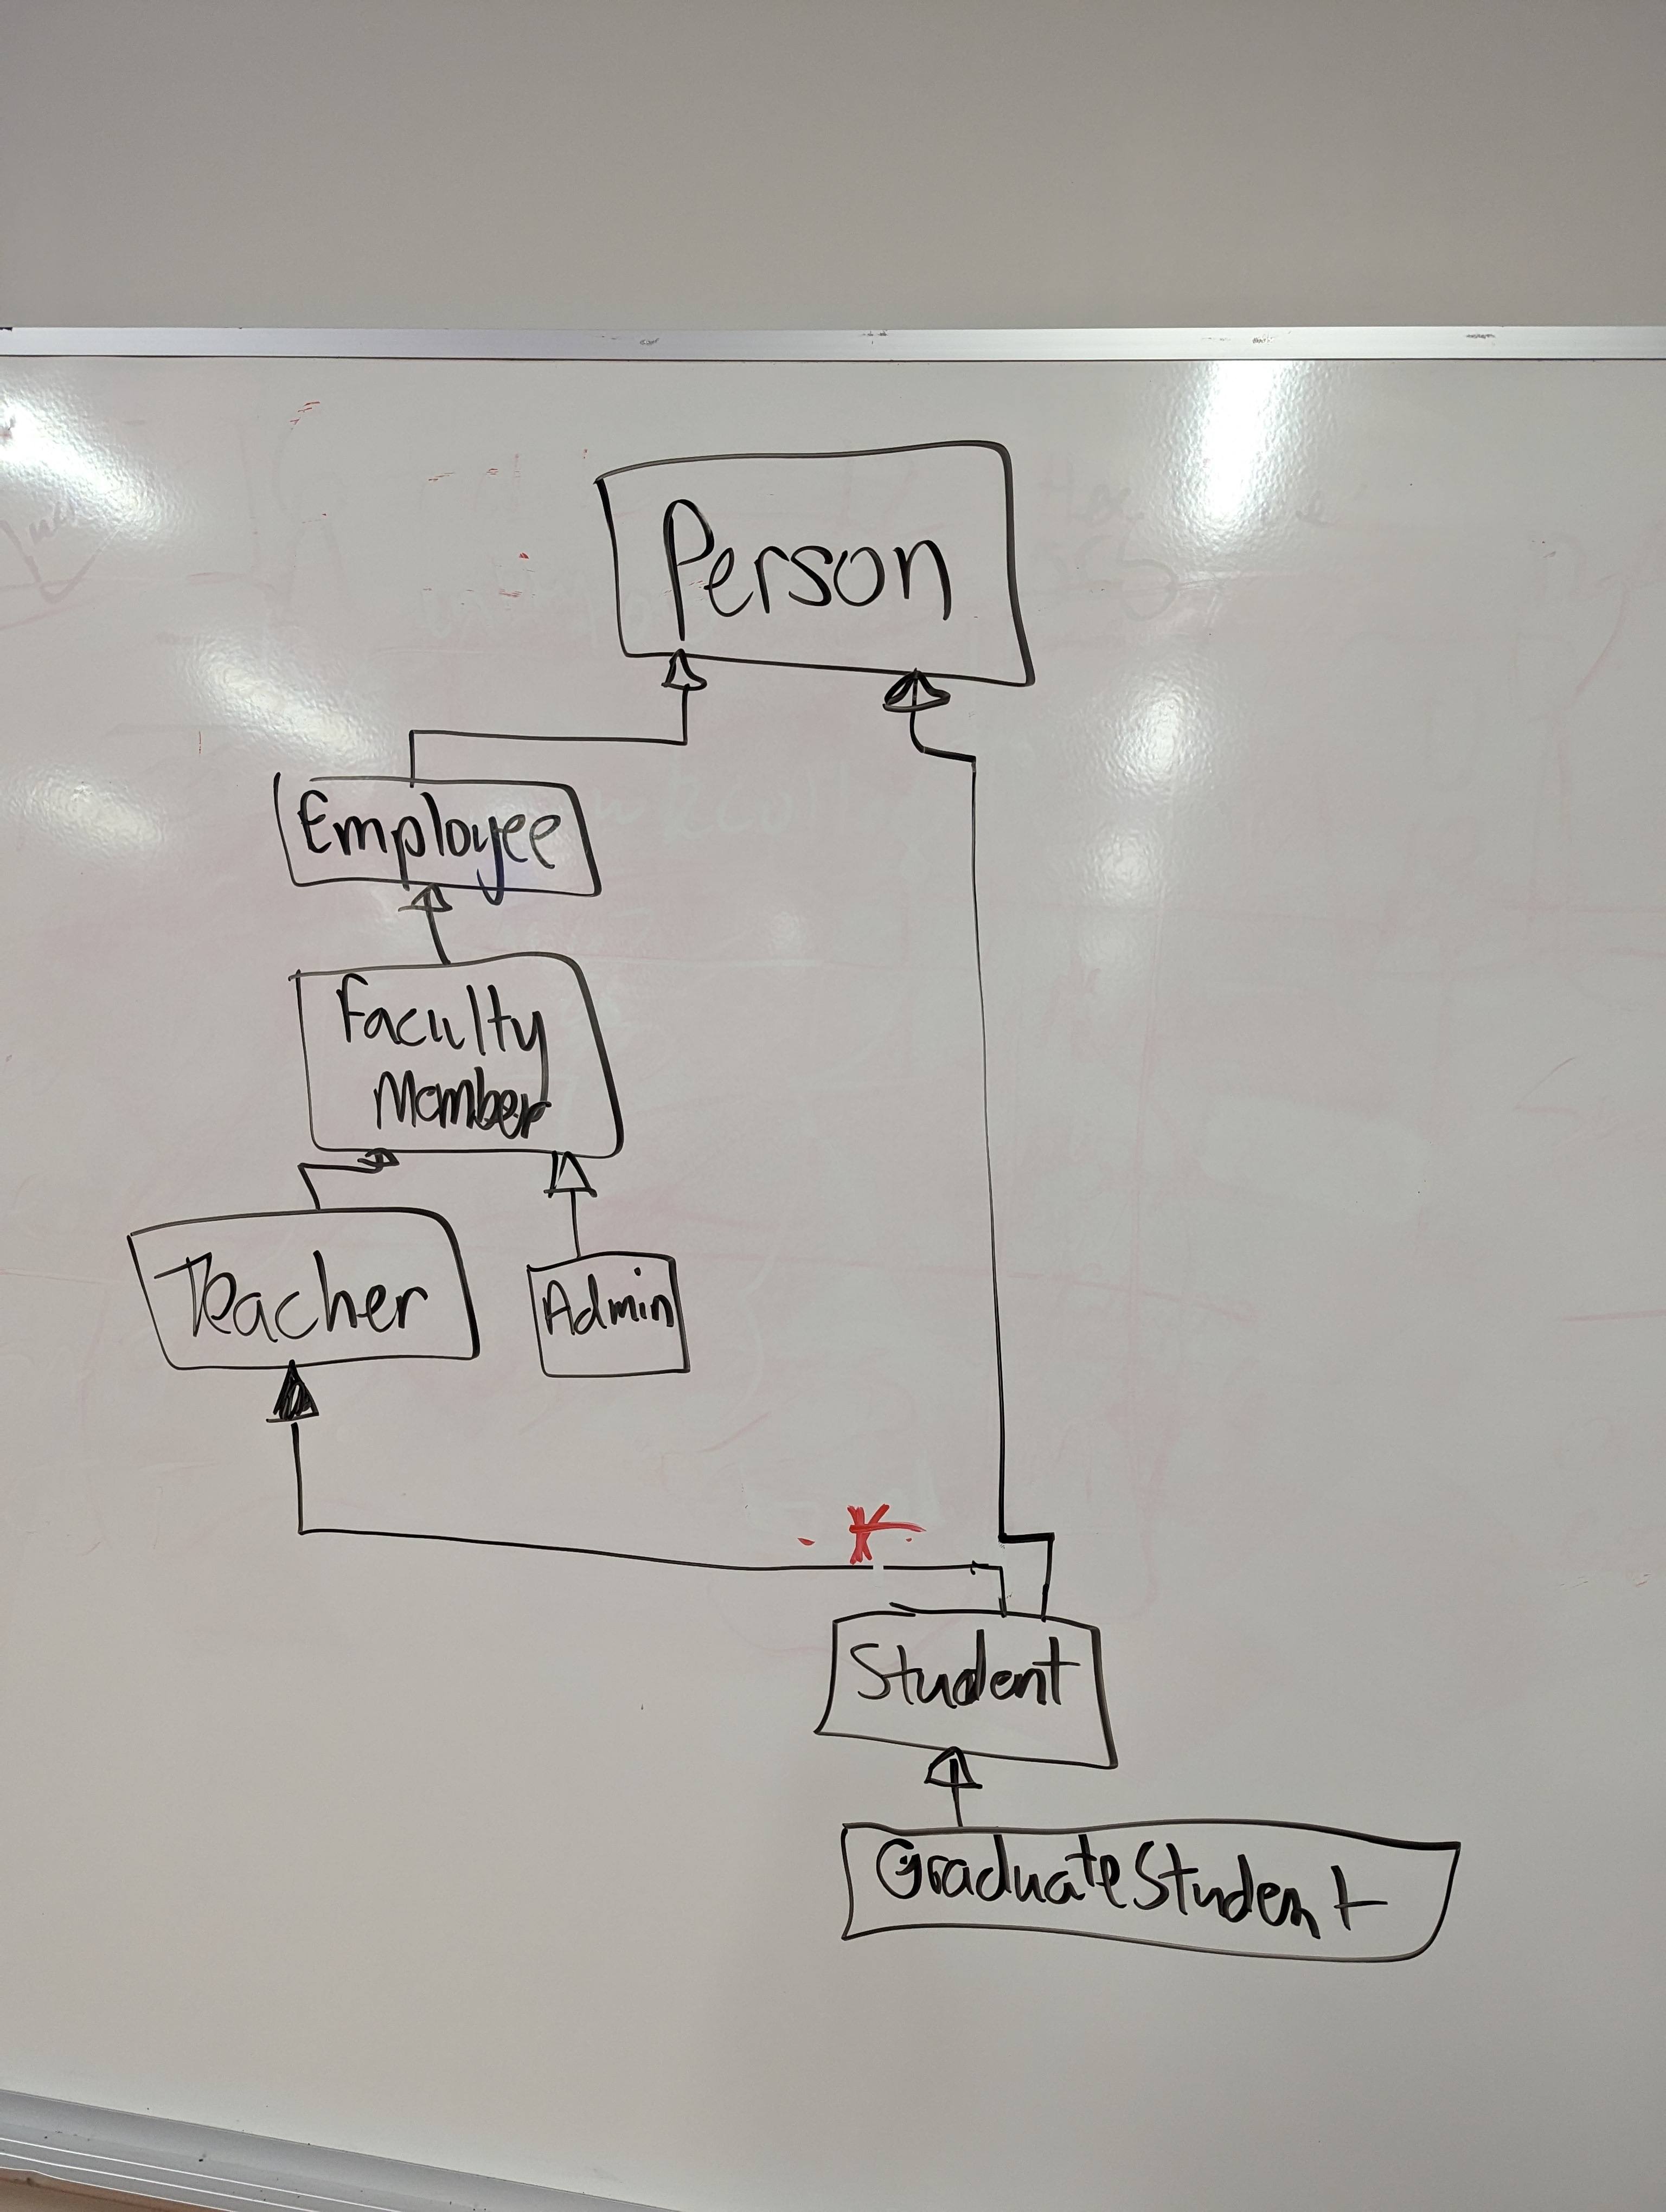 Person
Employee
Faculty
Member
Teacher
Admin
Student
GraduateStudent